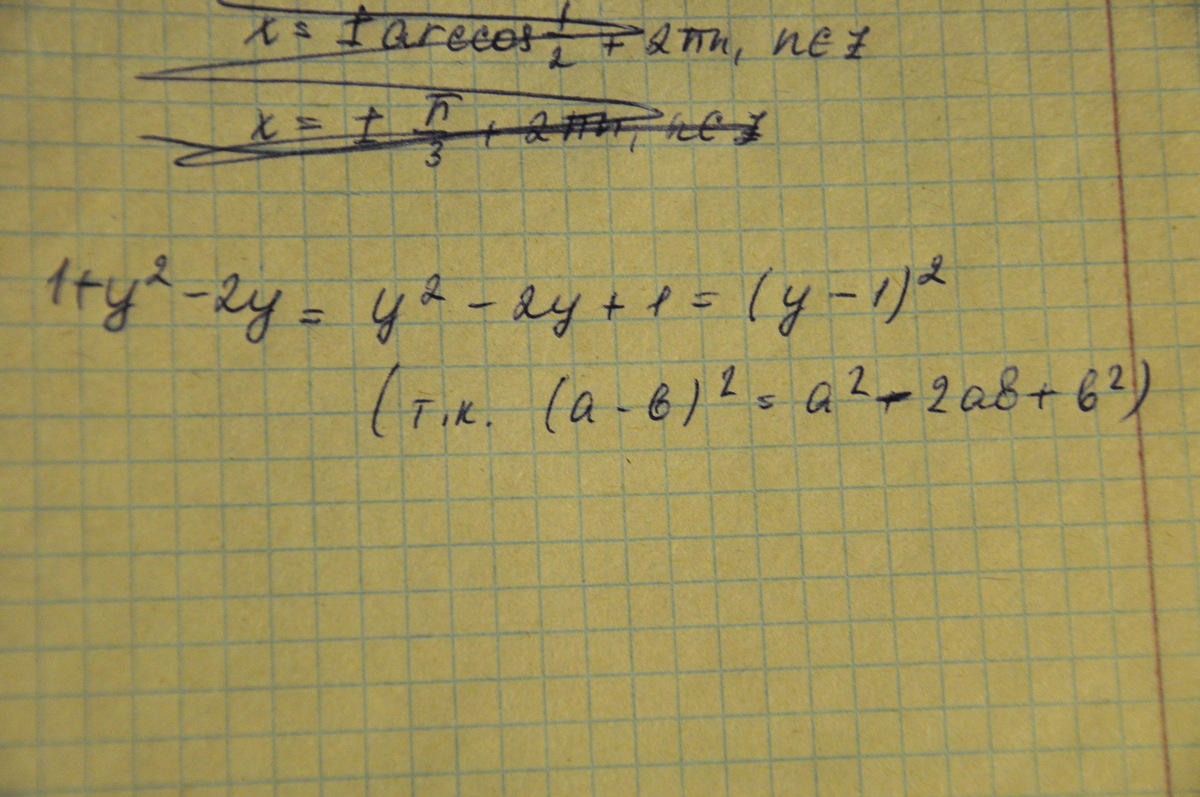 x = ± arccos 1/2 + 2πn, n∈Z
x = ± π/3 + 2πn, n∈Z
1+y² - 2y = y² - 2y + 1 = (y - 1)²
(т.к. (a - в)² = a² - 2aв + в²)